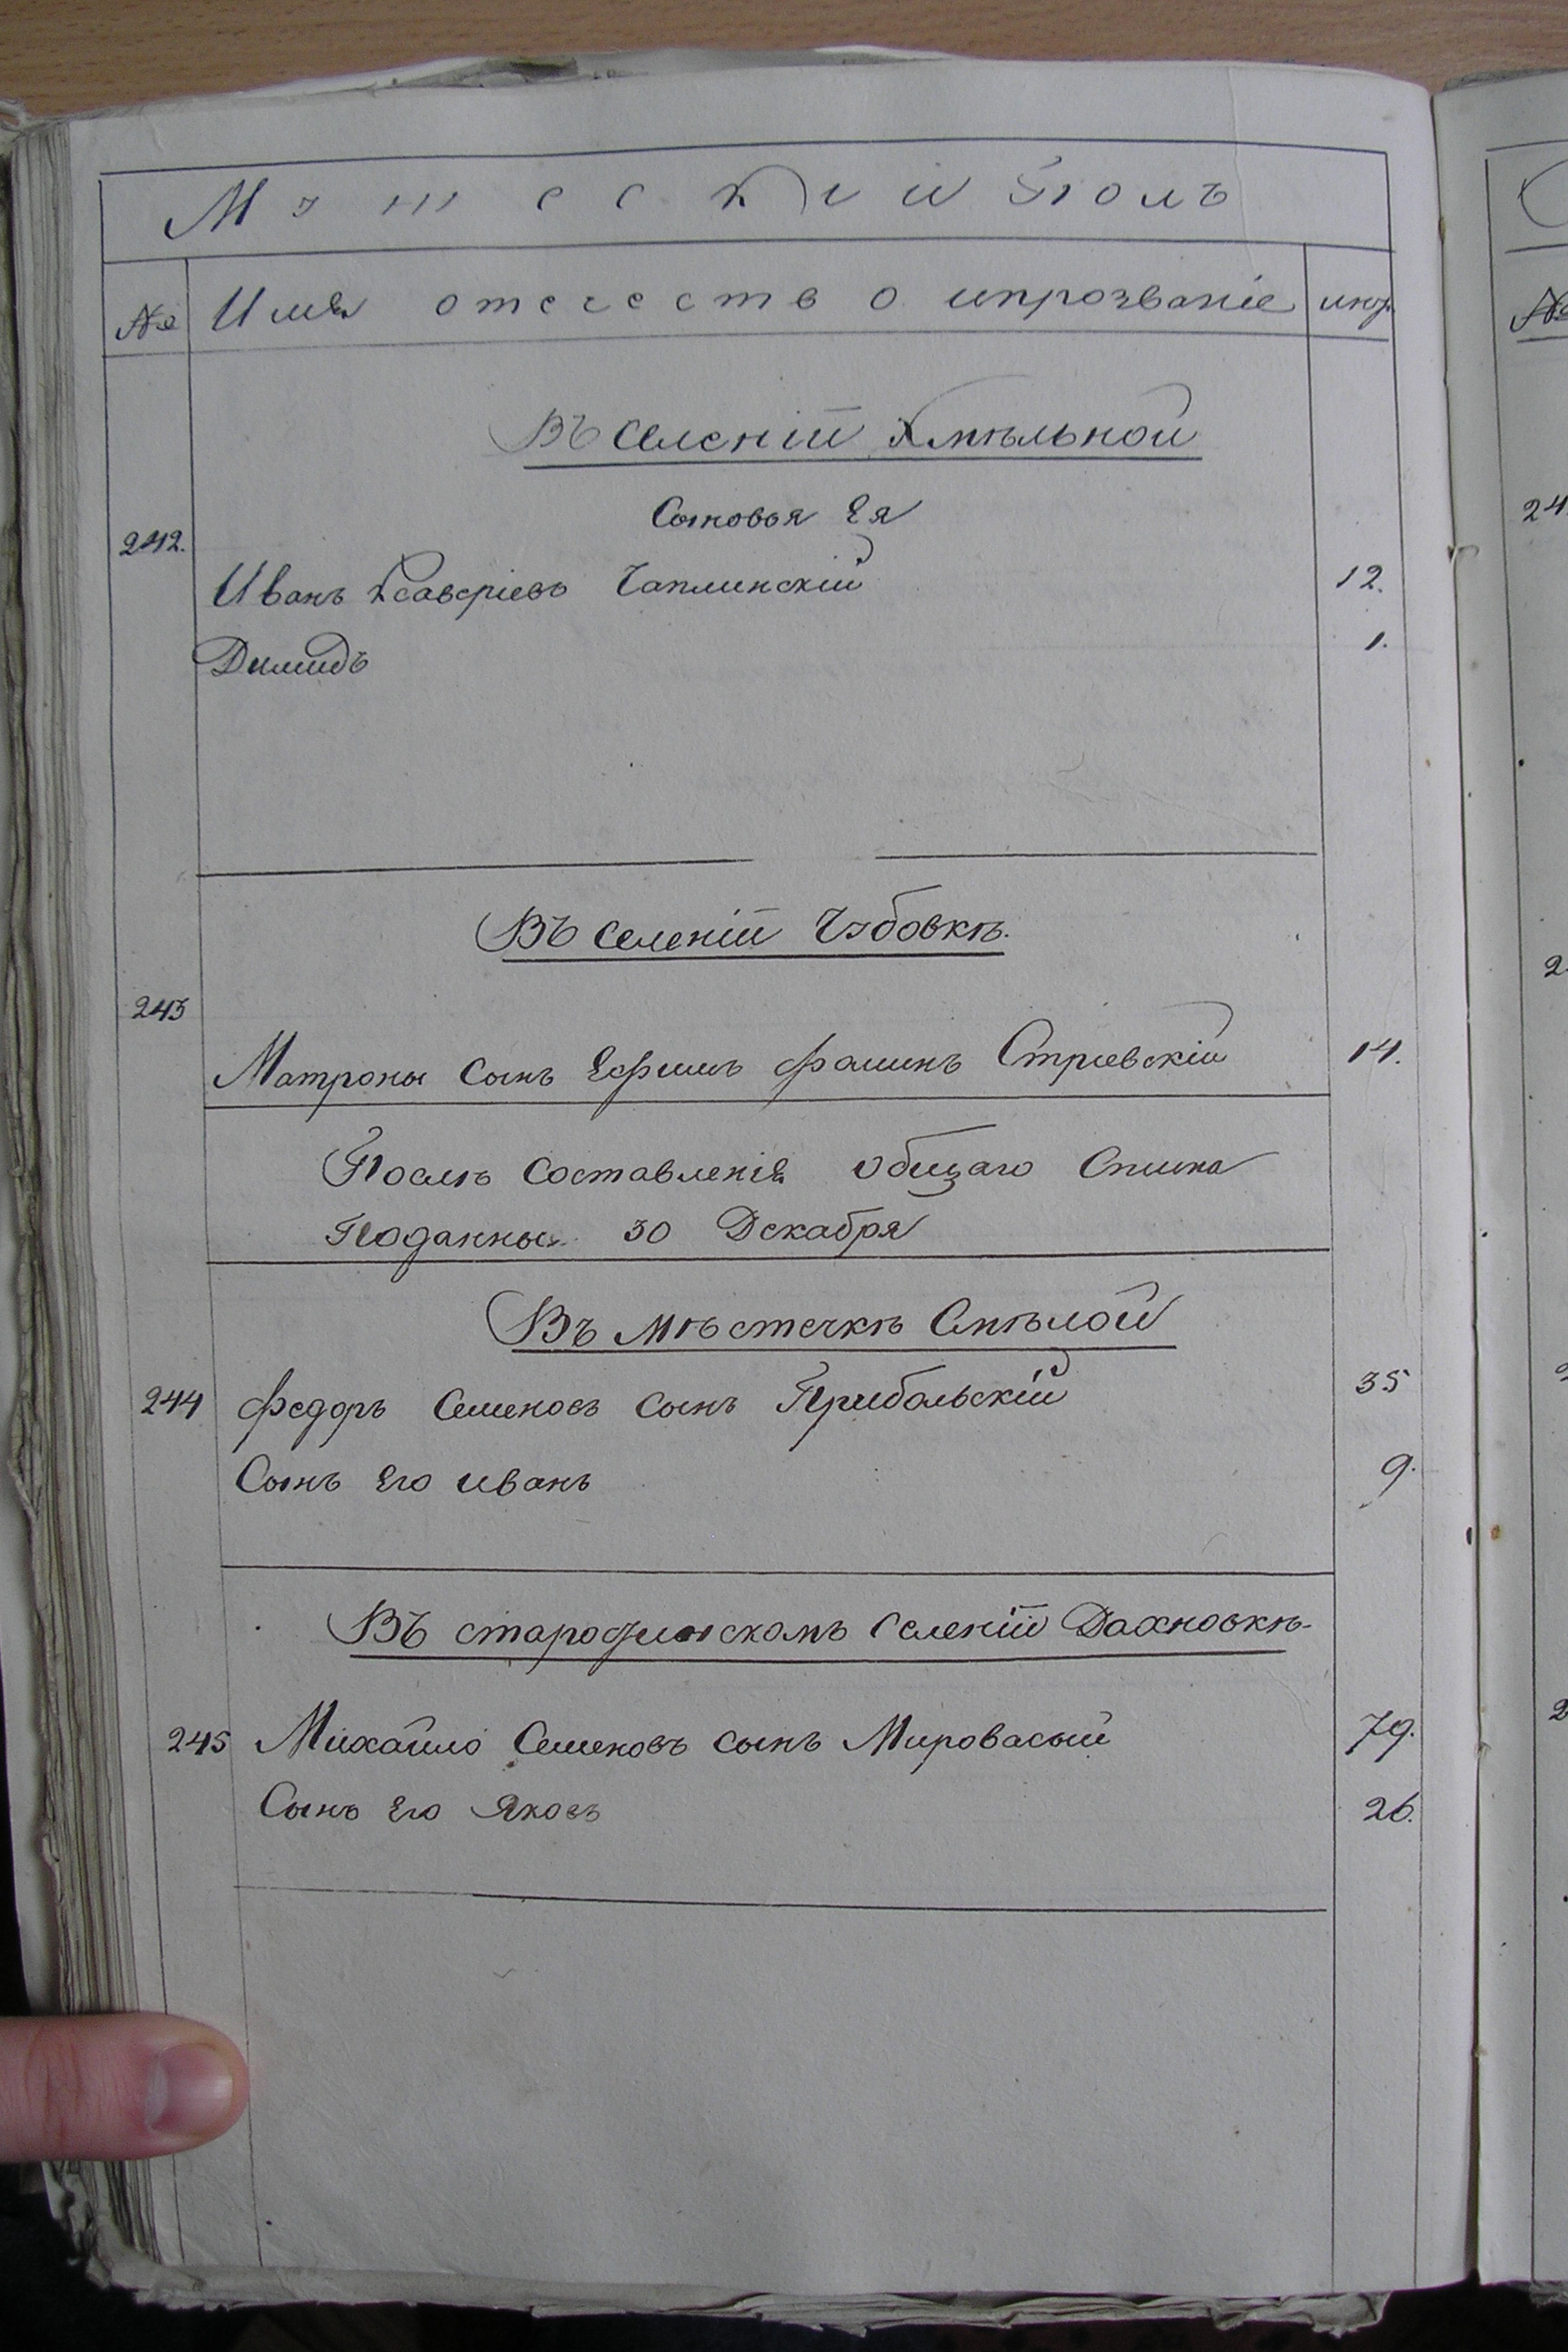 Мужескій Полъ
№ Имя отечество ипрозваніе
Въ Селеніи Хмѣльной
Сыновья Ея
242. Иванъ Ксаверіевъ Чаплинскій 12.
1.
Въ Селеніи Чубовкѣ.
243
Матроны Сынъ Ефимъ Фоминъ Стріевскій 14.
Послѣ Составленія Общаго Списка
Поданные 30 Декабря
Въ Мѣстечкѣ Смѣлой
244 Федоръ Семеновъ Сынъ Прибольскій 35
Сынъ Его Иванъ 9.
Въ Селеніи Дахновкѣ
245 Михайло Семеновъ Сынъ 79.
Сынъ Его Яковъ 26.
24